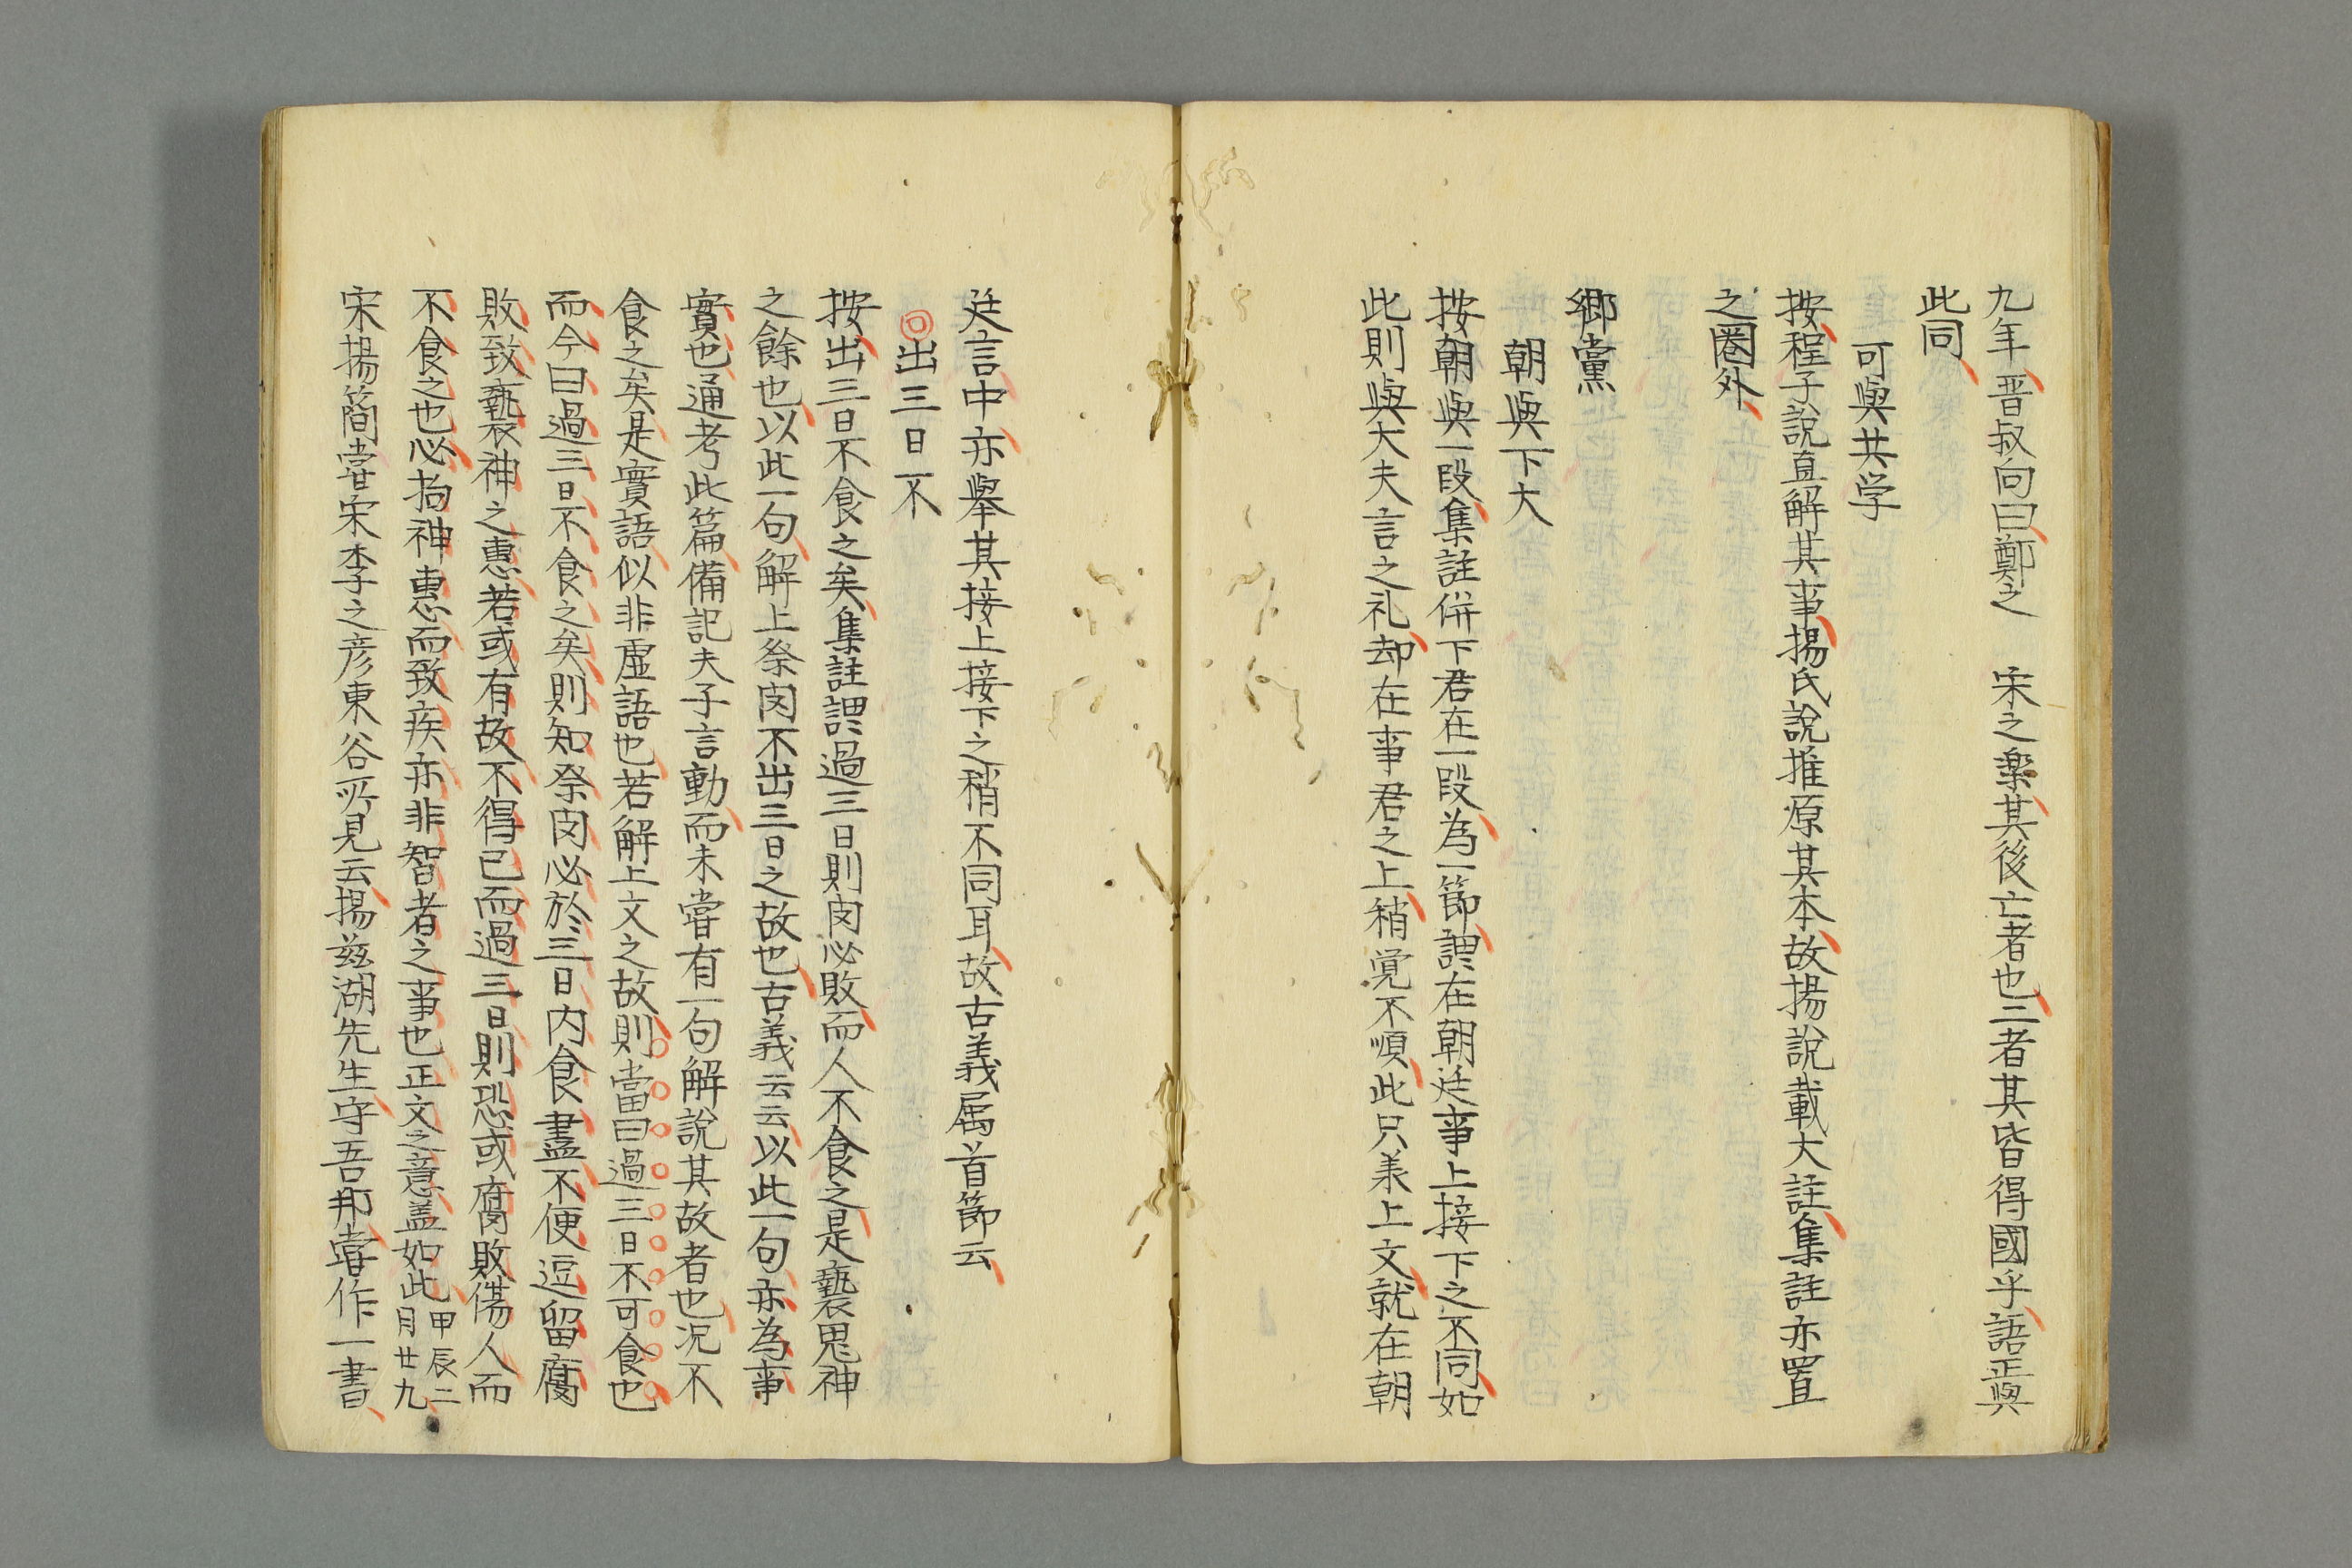 九年晋叔向曰鄭之　宋之楽其後亡者也二者其皆得國乎語正與
此同
可與共学
按程子說直解其事揚氏說推原其本故揚說載大註集註亦置
之圏外
郷黨
朝與下大
按朝與一段集註併下君在一段為一節謂在朝廷事上接下之不同如
此則與大夫言之礼却在事君之上稍覚不順此只羕上文就在朝
廷言中亦舉其接上接下之稍不同耳故古義属首節云
出三日不
按出三日不食之矣集註謂過三日則肉必敗而人不食之是褻鬼神
之餘也以此一句解上祭肉不出三日之故也古義云云以此一句亦為事
實也通考此篇備記夫子言動而未甞有一句解說其故者也况不
食之矣是實語似非虚語也若解上文之故則當曰過三日不可食也
而今曰過三日不食之矣則知祭肉必於三日内食盡不便逗留腐
敗致褻神之惠若或有故不得已而過三日則恐或腐敗傷人而
不食之也必拘神惠而致疾亦非智者之事也正文之意盖如此甲辰二月廿九
宋揚簡甞宋李之彦東谷所見云揚兹湖先生守吾邦甞作一書